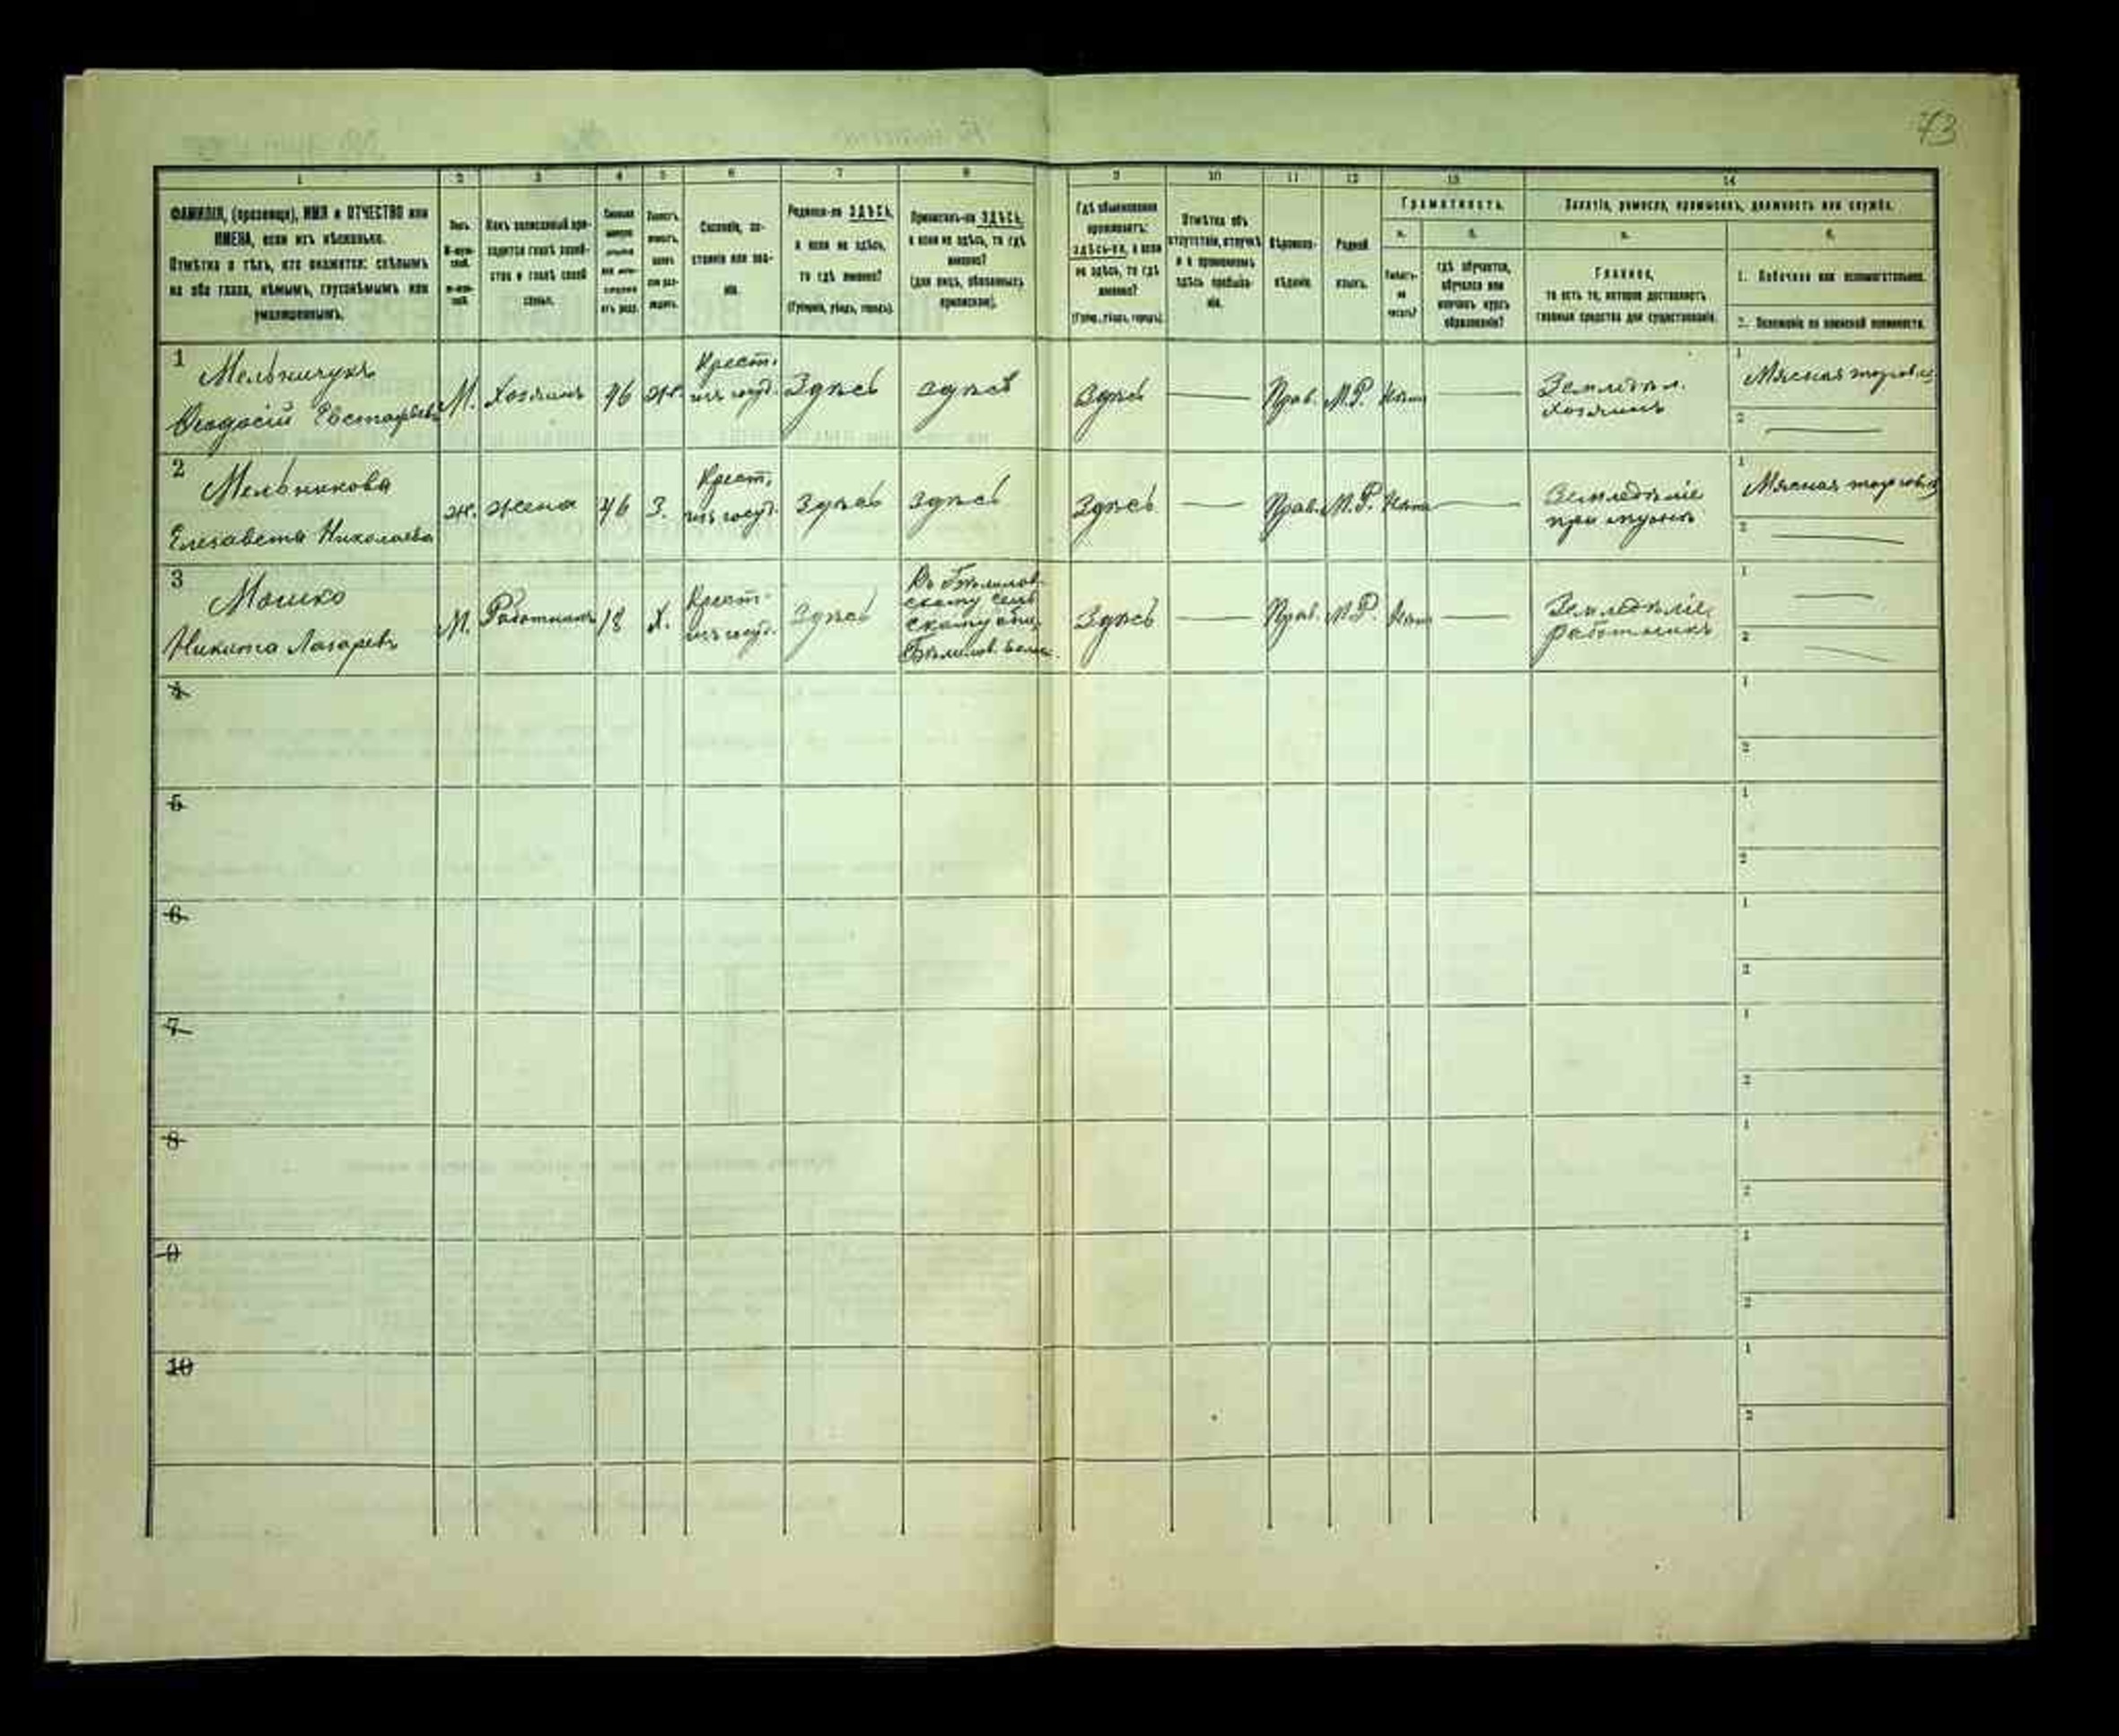 73
1 2 3 4 5 6 7 8 9 10 11 12 13 14
ФАМИЛІЯ, (прозвище), ИМЯ и ОТЧЕСТВО или
ИМЕНА, если ихъ нѣсколько.
Отмѣтка о тѣхъ, кто окажется: слѣпымъ
на оба глаза, нѣмымъ, глухонѣмымъ или
умалишеннымъ.
Полъ.
М-муж-
ской.
ж-жен-
скій.
Какъ записанный при-
ходится главѣ хозяй-
ства и главѣ своей
семьи.
Сословіе, со-
стояніе или зва-
ніе.
Родился-ли ЗДѢСЬ,
а если не здѣсь,
то гдѣ именно?
(Губернія, уѣздъ, городъ).
Приписанъ-ли ЗДѢСЬ,
а если не здѣсь, то гдѣ
именно?
(для лицъ, обязанныхъ
припискою).
Гдѣ обыкновенно
проживаетъ:
здѣсь-ли, а если
не здѣсь, то гдѣ
именно?
(Губер., уѣздъ, городъ).
Отмѣтка объ
отсутствіи, отлучкѣ
и о временномъ
здѣсь пребыва-
ніи.
Вѣроиспо-
вѣданіе.
Родной
языкъ.
Грамотность.
а.
Умѣетъ-
ли
читать?
б.
гдѣ обучается,
обучался или
кончилъ курсъ
образованія?
Занятіе, ремесло, промыселъ, должность или служба.
а.
Главное,
то есть то, которое доставляетъ
главныя средства для существованія.
б.
1. Побочное или вспомогательное.
2. Положеніе по воинской повинности.
1 Мельничукъ
Феодосій Евстафьевъ М. Хозяинъ 46 Ж. Крест. изъ госуд. Здѣсь здѣсь Здѣсь — Прав. М.Р. Нѣтъ — Земледѣл. хозяинъ 1 Мясная торговля
2 —
2 Мельникова
Елизавета Николаева ж. жена 46 З. Крест. изъ госуд. Здѣсь Здѣсь Здѣсь — Прав. М.Р. Нѣтъ — Земледѣліе при мужѣ 1 Мясная торговля
2 —
3 Мошко
Никита Лазаревъ М. Работникъ 18 Х. Крест. изъ госуд. Здѣсь Здѣсь — Прав. М.Р. Нѣтъ — Земледѣліе, работникъ 1 —
2 —
4 1
2
5 1
2
6 1
2
7 1
2
8 1
2
9 1
2
10 1
2